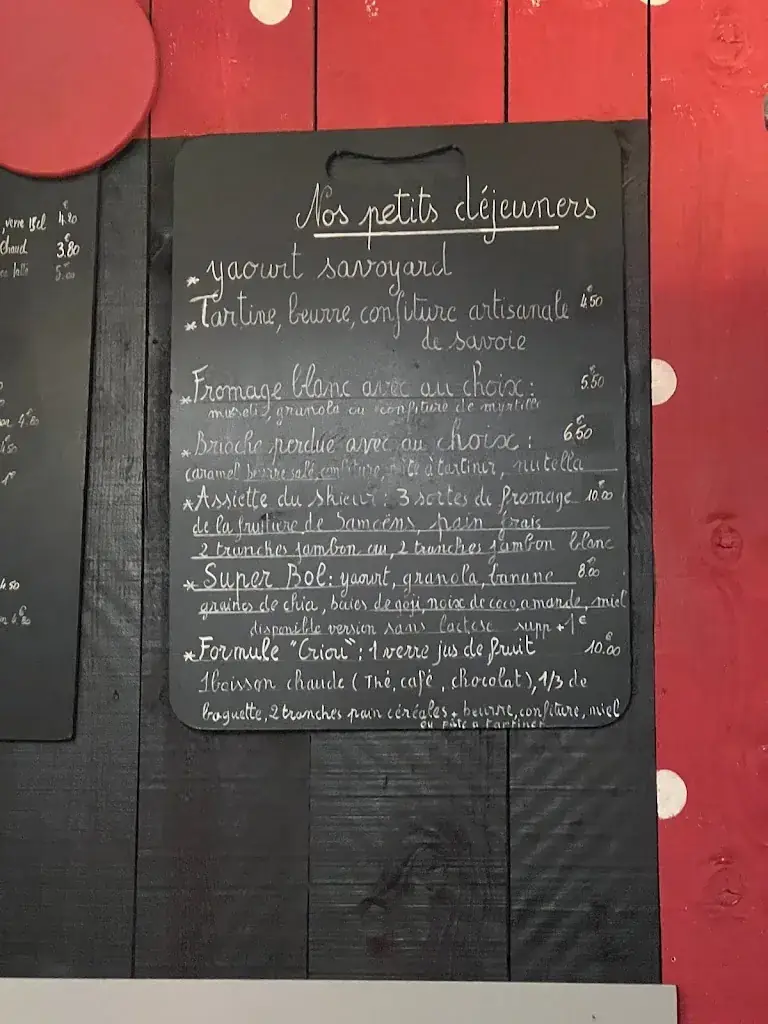 , verre 15cl 4.20€
chaud 3.80€
5.00€
4.50
Nos petits déjeuners
* yaourt savoyard
* Tartine, beurre, confiture artisanale 4.50€
de savoie
* Fromage blanc avec au choix: 5.50€
muesli, granola ou confiture de myrtille
* Brioche perdue avec au choix: 6.50€
caramel beurre salé, confiture, pâte à tartiner, nutella
* Assiette du skieur: 3 sortes de fromage 10.00€
de la fruitière de Samoëns, pain frais
2 tranches jambon cru, 2 tranches jambon blanc
* Super Bol: yaourt, granola, banane 8.00€
graines de chia, baies de goji, noix de coco, amande, miel
disponible version sans lactose supp +1€
* Formule "Criou": 1 verre jus de fruit 10.00€
1 boisson chaude (Thé, café, chocolat), 1/3 de
baguette, 2 tranches pain céréales + beurre, confiture, miel
ou pâte a tartiner